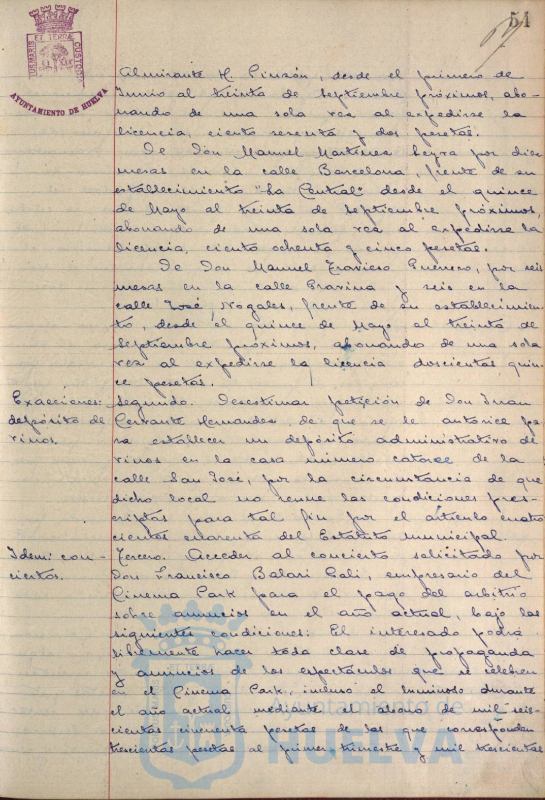 54
PORTUS MARIS ET TERRAE CUSTODIA
AYUNTAMIENTO DE HUELVA
Almirante H. Pinzón, desde el primero de
Junio al treinta de Septiembre próximos, abo-
nando de una sola vez al expedirse la
licencia, ciento sesenta y dos pesetas.
De Don Manuel Martínez Leyra por diez
mesas en la calle Barcelona, frente de su
establecimiento "La Central" desde el quince
de Mayo al treinta de Septiembre próximos,
abonando de una sola vez al expedirse la
licencia, ciento ochenta y cinco pesetas.
De Don Manuel Travieso Guerrero, por seis
mesas en la calle Gravina y seis en la
calle José Nogales, frente de su establecimien-
to, desde el quince de Mayo al treinta de
Septiembre próximos, abonando de una sola
vez al expedirse la licencia doscientas quin-
ce pesetas.
Exacciones:
depósito de
vinos.
Segundo. Desestimar petición de Don Juan
Cervante Hernandez, de que se le autorice pa-
ra establecer un depósito administrativo de
vinos en la casa número catorce de la
calle San José, por la circunstancia de que
dicho local no reune las condiciones pres-
criptas para tal fin por el artículo cuatro
cientos cuarenta del Estatuto municipal.
Idem: con-
ciertos.
Tercero. Acceder al concierto solicitado por
Don Francisco Balari Gali, empresario del
Cinema Park para el pago del arbitrio
sobre anuncios en el año actual, bajo las
siguientes condiciones: El interesado podrá
libremente hacer toda clase de propaganda
y anuncios de los espectáculos que se celebren
en el Cinema Park, incluso el luminoso durante
el año actual mediante el abono de mil seis-
cientas cincuenta pesetas de las que corresponden
trescientas pesetas al primer trimestre y mil trescientas
Ayuntamiento de
HUELVA